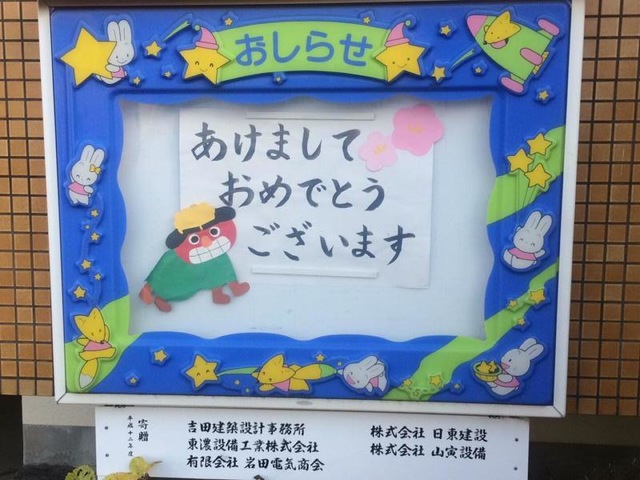 おしらせ
あけまして
おめでとう
ございます
寄贈
平成十二年度
吉田建築設計事務所
東濃設備工業株式会社
有限会社 岩田電気商会
株式会社 日東建設
株式会社 山寅設備